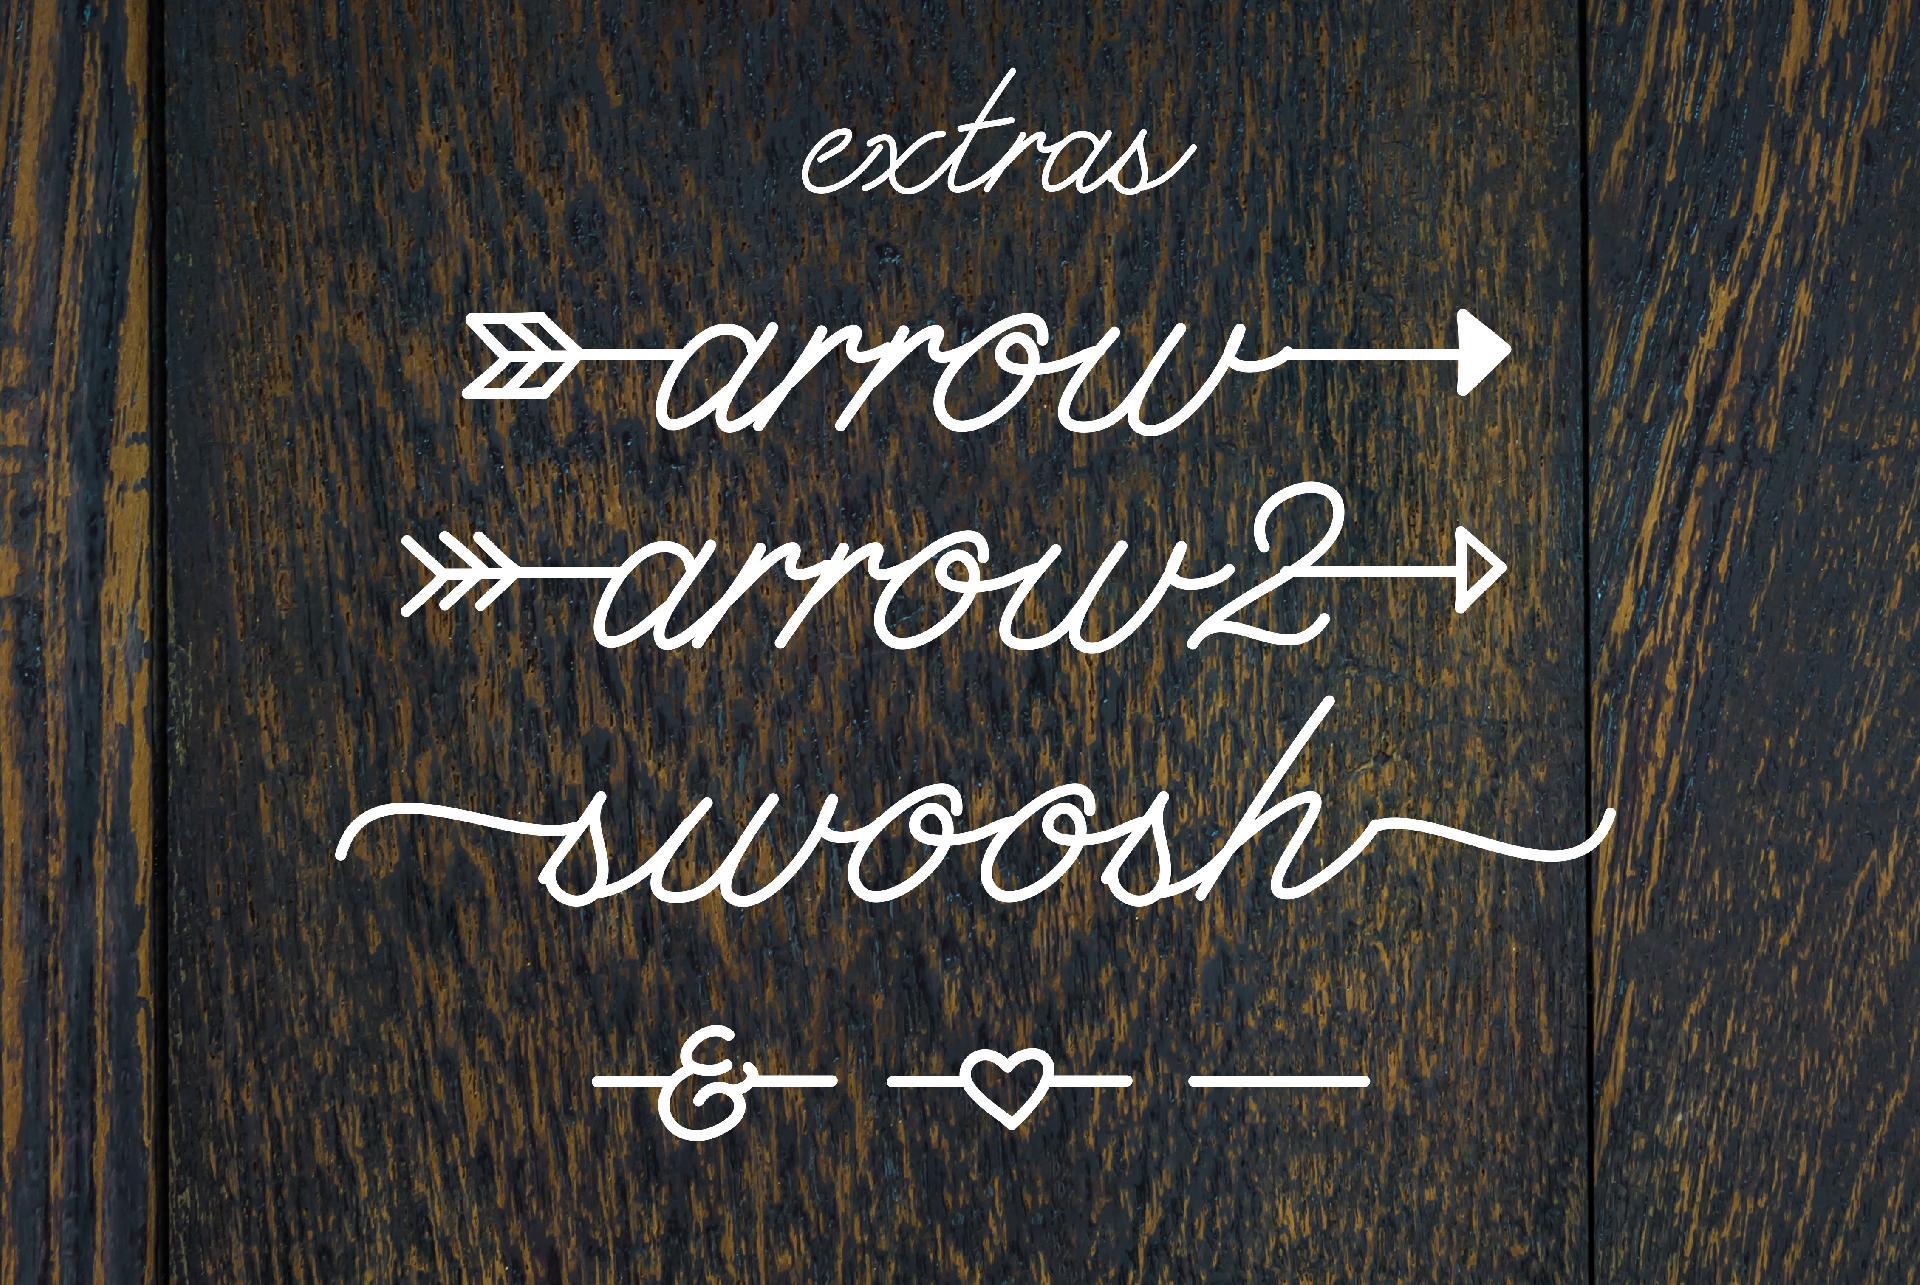 extras
arrow
arrow2
swoosh
&